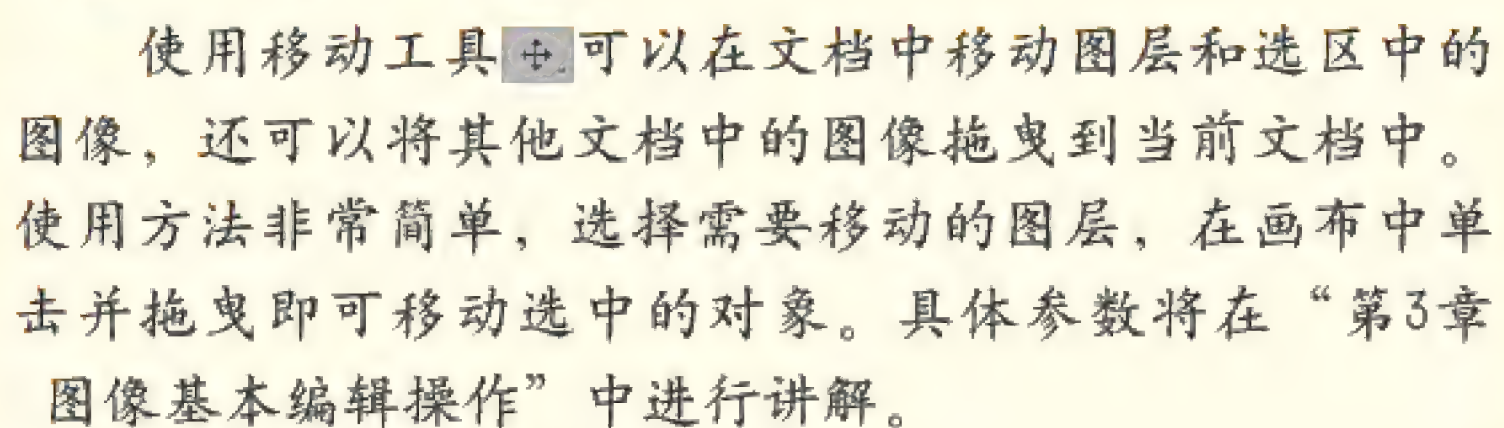 使用移动工具可以在文档中移动图层和选区中的
图像，还可以将其他文档中的图像拖曳到当前文档中。
使用方法非常简单，选择需要移动的图层，在画布中单
击并拖曳即可移动选中的对象。具体参数将在“第3章
图像基本编辑操作”中进行讲解。